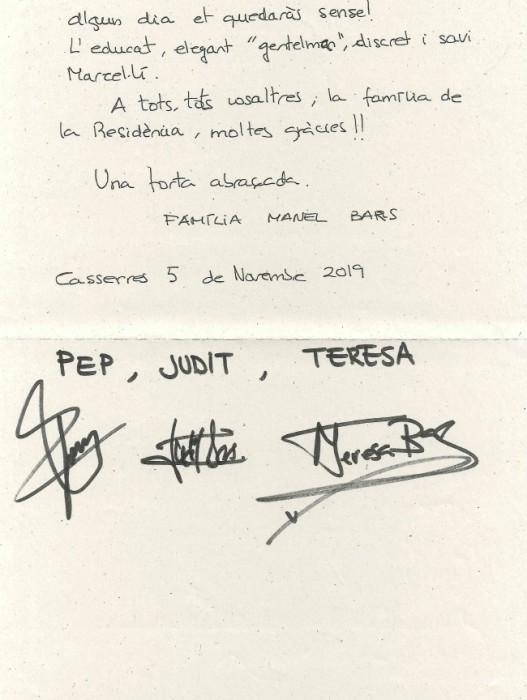 algun dia et quedaràs sense!
L'educat, elegant "gentelman", discret i savi
Marcel·lí.
A tots, tots vosaltres, la família de
la Residència, moltes gràcies!!
Una forta abraçada.
FAMÍLIA MANEL BARS
Casserres 5 de Novembre 2019
PEP, JUDIT, TERESA
Teresa Bars